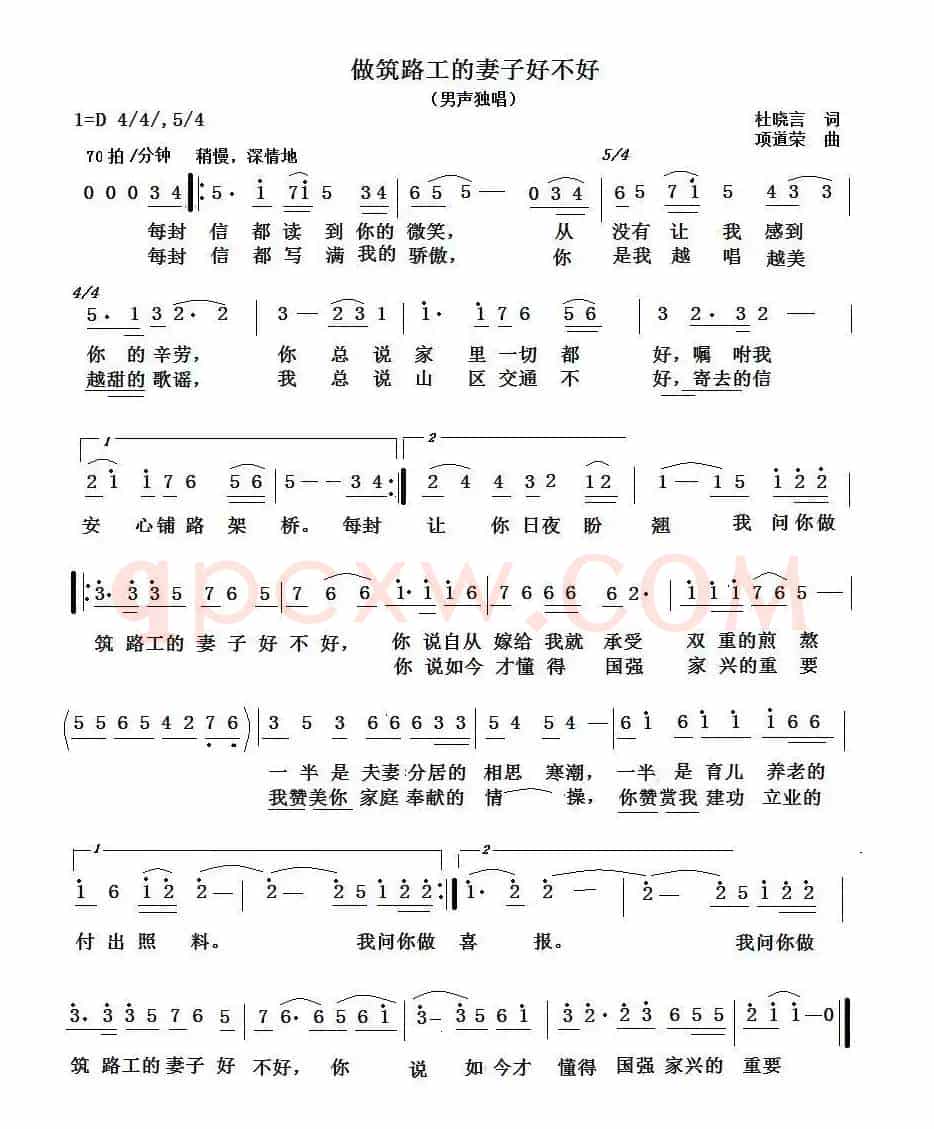 做筑路工的妻子好不好
（男声独唱）
1=D 4/4/,5/4
杜晓言 词
项道荣 曲
70拍/分钟 稍慢,深情地
5/4
0 0 0 3 4 5· 1 7 1 5 3 4 6 5 5 — 0 3 4 6 5 7 1 5 4 3 3
每封 信 都 读 到 你的 微笑, 从 没有 让 我 感到
每封 信 都 写 满 我的 骄傲, 你 是我 越 唱 越美
4/4
5· 1 3 2· 2 3 — 2 3 1 1· 1 7 6 5 6 3 2· 3 2 —
你 的 辛劳, 你 总 说 家 里 一切 都 好, 嘱 咐我
越甜的 歌谣, 我 总 说 山 区 交通 不 好, 寄去的信
1 2
2 1 1 7 6 5 6 5 — — 3 4 2 4 4 3 2 1 2 1 — 1 5 1 2 2
安 心铺 路 架 桥。 每封 让 你 日夜 盼 翘 我 问你做
3· 3 3 5 7 6 5 7 6 6 1· 1 1 6 7 6 6 6 6 2· 1 1 1 7 6 5 —
筑 路工的 妻 子 好 不 好, 你 说自从 嫁给 我就 承受 双 重的 煎 熬
你 说如今 才懂 得 国强 家 兴的 重 要
(5 5 6 5 4 2 7 6) 3 5 3 6 6 6 3 3 5 4 5 4 — 6 1 6 1 1 1 6 6
一 半 是 夫妻 分居的 相思 寒潮, 一半 是 育儿 养老的
我赞美你 家庭 奉献的 情 操, 你赞赏我 建功 立业的
1 2
1 6 1 2 2 — 2 — 2 5 1 2 2 1· 2 2 — 2 — 2 5 1 2 2
付 出 照 料。 我问你做 喜 报。 我问你做
3· 3 3 5 7 6 5 7 6· 6 5 6 1 3 — 3 5 6 1 3 2· 2 3 6 5 5 2 1 1 — 0
筑 路工的 妻子 好 不好, 你 说 如 今才 懂得 国强 家兴的 重要
qpcxw.COM